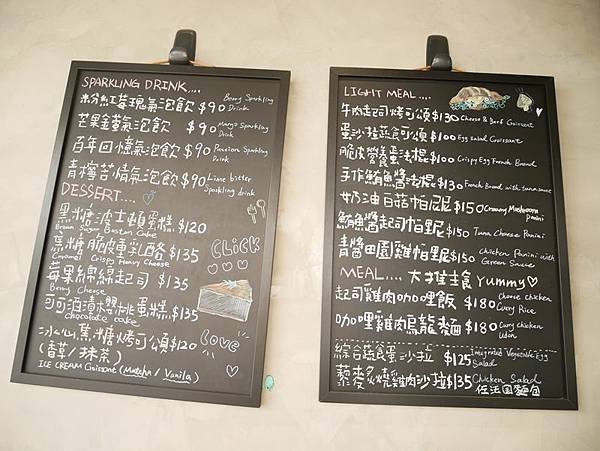 SPARKLING DRINK....
粉紅莓瑰氣泡飲 $90 Berry Sparkling Drink
芒果金萱氣泡飲 $90 Mango Sparkling Drink
百年回憶氣泡飲 $90 Passion Sparkling Drink
青檸苦情氣泡飲 $90 Lime bitter Sparkling drink
DESSERT....
黑糖波士頓蛋糕 $120
Brown Sugar Boston Cake
焦糖脆皮重乳酪 $135
Caramel Crispy Heavy Cheese
莓果綿綿起司 $135
Berry Cheese
可可酒漬櫻桃蛋糕 $135
chocolate cake
冰心焦糖烤可頌 $120
(香草/抹茶)
ICE CREAM Croissant (Matcha / Vanila)
CLICK
love
LIGHT MEAL....
牛肉起司烤可頌 $130 Cheese & Beef Croissant
蛋沙拉蔬食可頌 $100 Egg salad Croissant
脆皮營養蛋法棍 $100 Crispy Egg French Bread
手作鮪魚醬法棍 $130 French Bread with tuna sauce
奶油白菇帕尼尼 $150 Creamy Mushroom panini
鮪魚醬起司帕尼 $150 Tuna Cheese Panini
青醬田園雞帕里尼 $150 Chicken Panini with Green Sauce
MEAL.... 大推主食 Yummy
起司雞肉咖哩飯 $180 Cheese chicken Curry Rice
咖哩雞肉烏龍麵 $180 Curry chicken Udon
綜合蔬食蛋沙拉 $125 Integrated Vegetable Egg Salad
藜麥炙燒雞肉沙拉 $135 Chicken Salad
佐法国麵包